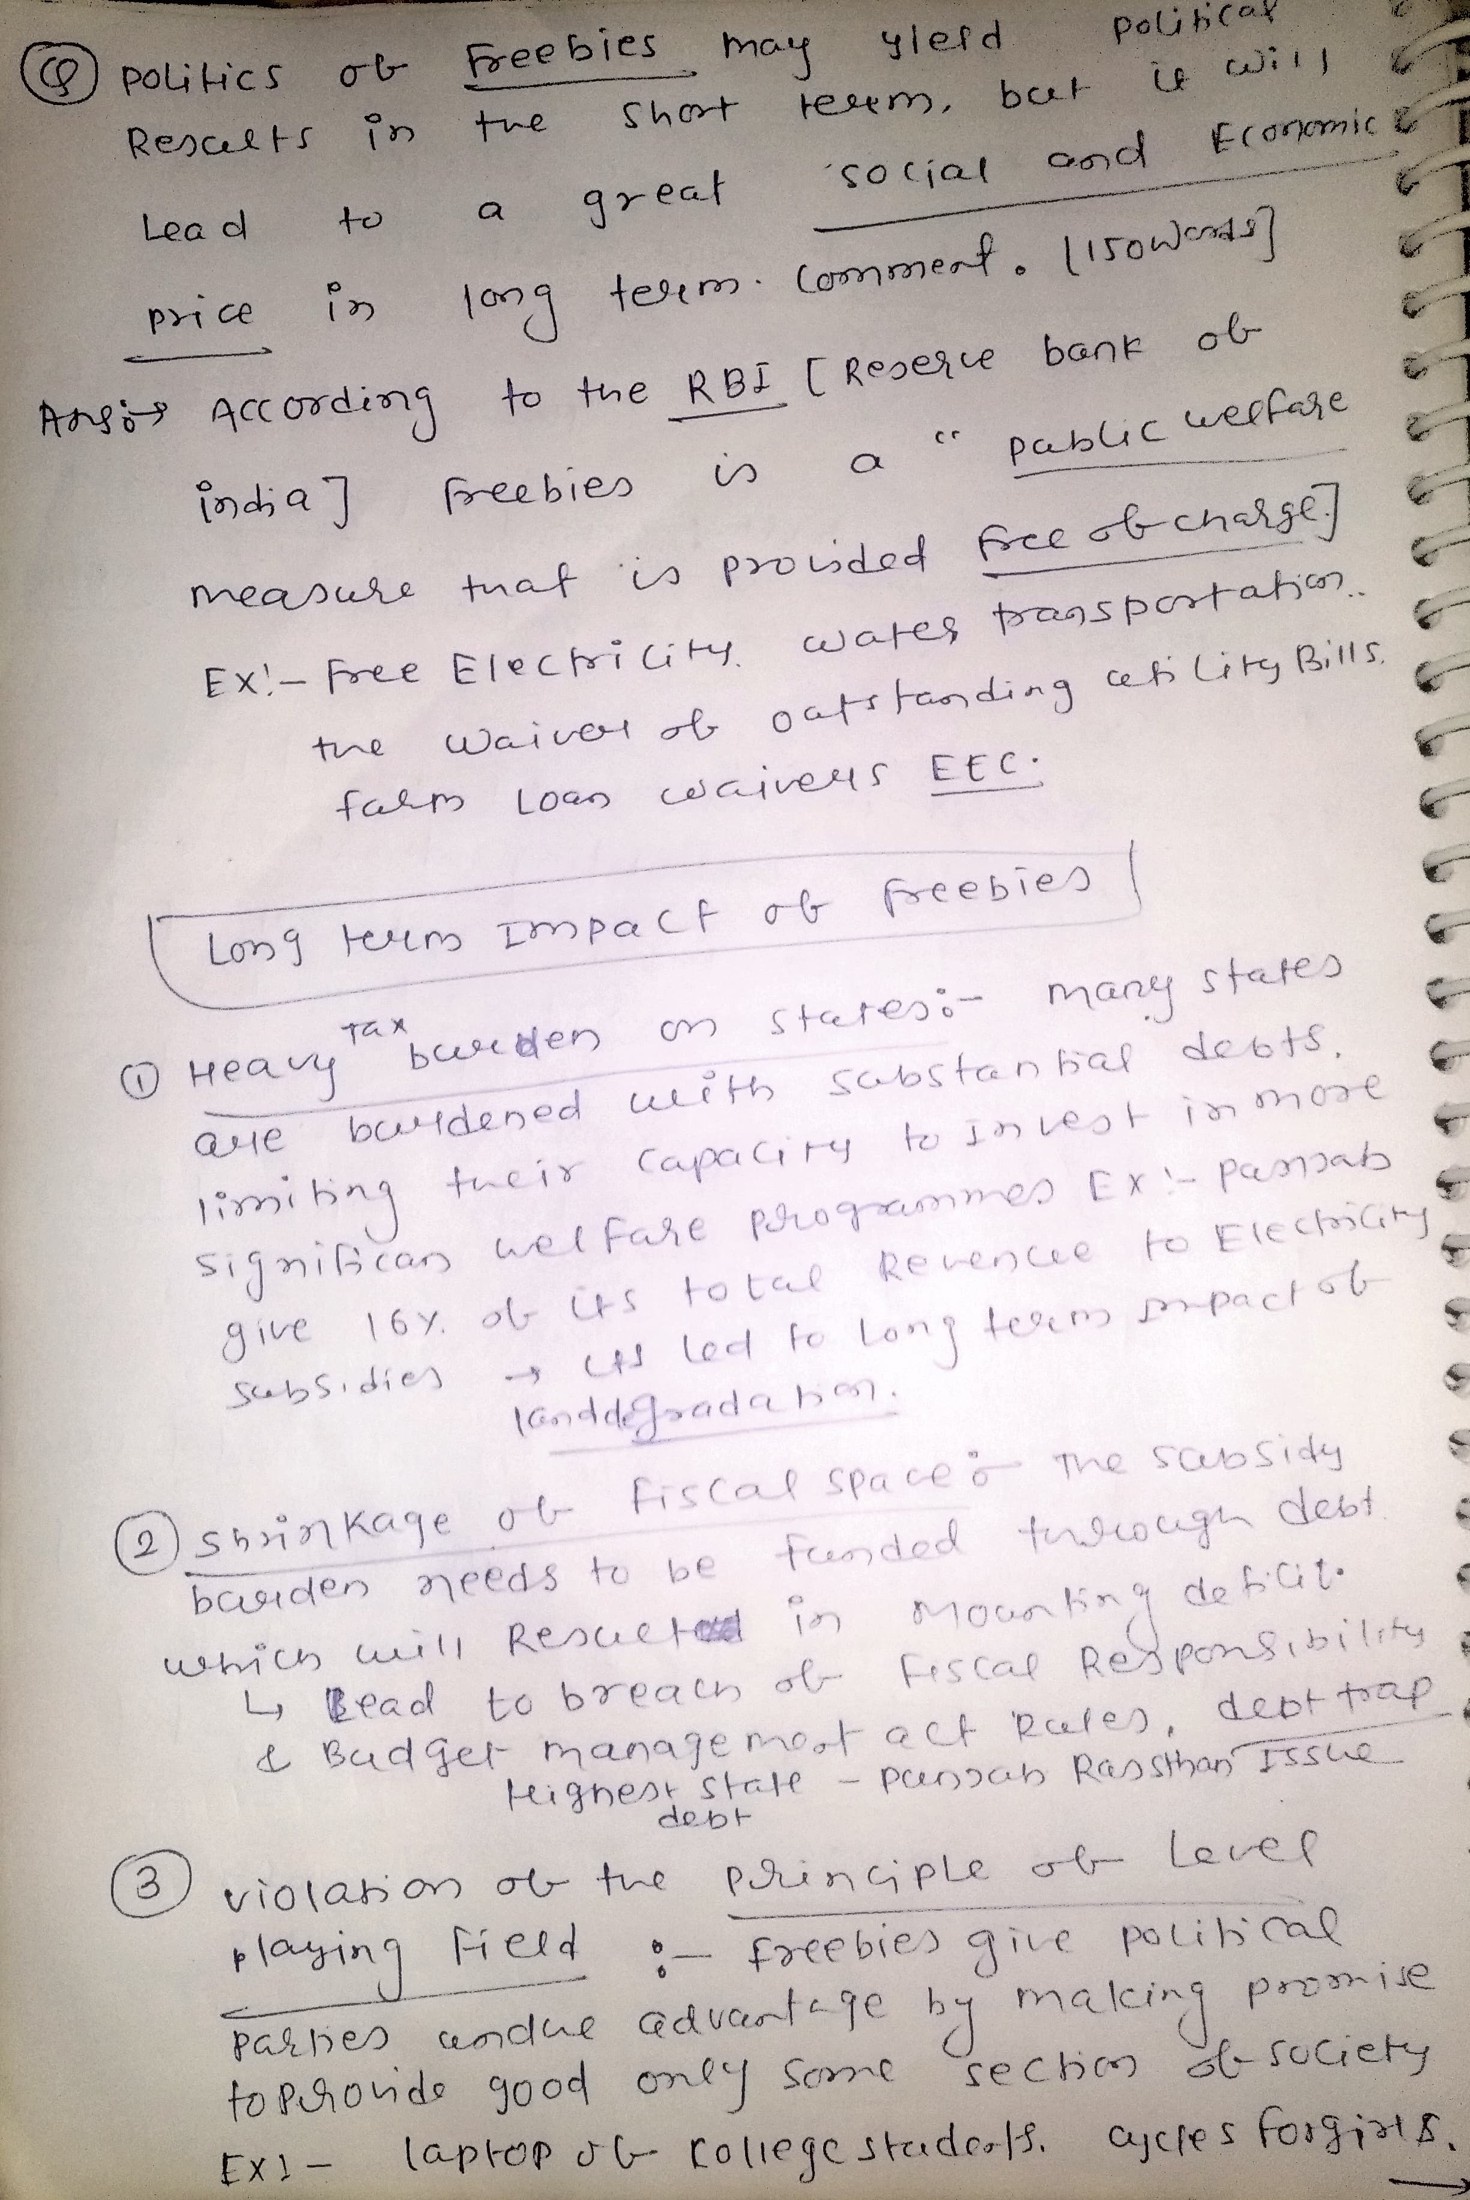 Q Politics of Freebies may yield political
Results in the short term, but it will
Lead to a great social and Economic
price in long term. Comment. [150 Words]
Ans:→ According to the RBI [Reserve bank of
india] freebies is a "public welfare
measure that is provided free of charge]
Ex:- Free Electricity. water transportation..
the waiver of outstanding utility Bills.
farm Loan waivers ETC.
Long term Impact of freebies
① Heavy Tax burden on states:- many states
are burdened with substantial debts.
limiting their capacity to Invest in more
significan welfare programmes Ex:- Punjab
give 16%. of its total Revenue to Electricity
subsidies → its led to Long term impact of
land degradation.
② Shrinkage of fiscal space:- The subsidy
burden needs to be funded through debt.
which will Result in Mounting deficit.
↳ Lead to breach of Fiscal Responsibility
& Budget management act Rules, debt trap
Highest State - Punjab Rajsthan Issue
debt
③ violation of the principle of Level
playing field :- freebies give political
parties undue advantage by making promise
to provide good only some section of society
Ex:- laptop of college students. cycles for girls.
→